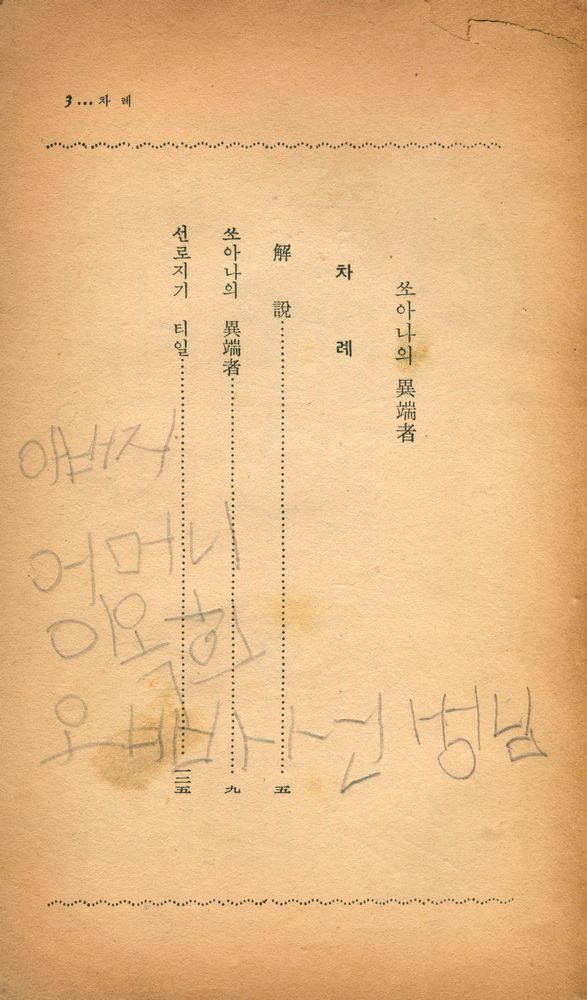 3... 차 례
쏘아나의 異端者
차 례
解 說 五
쏘아나의 異端者 九
선로지기 티일 一二五
아버지
어머니
이옥희